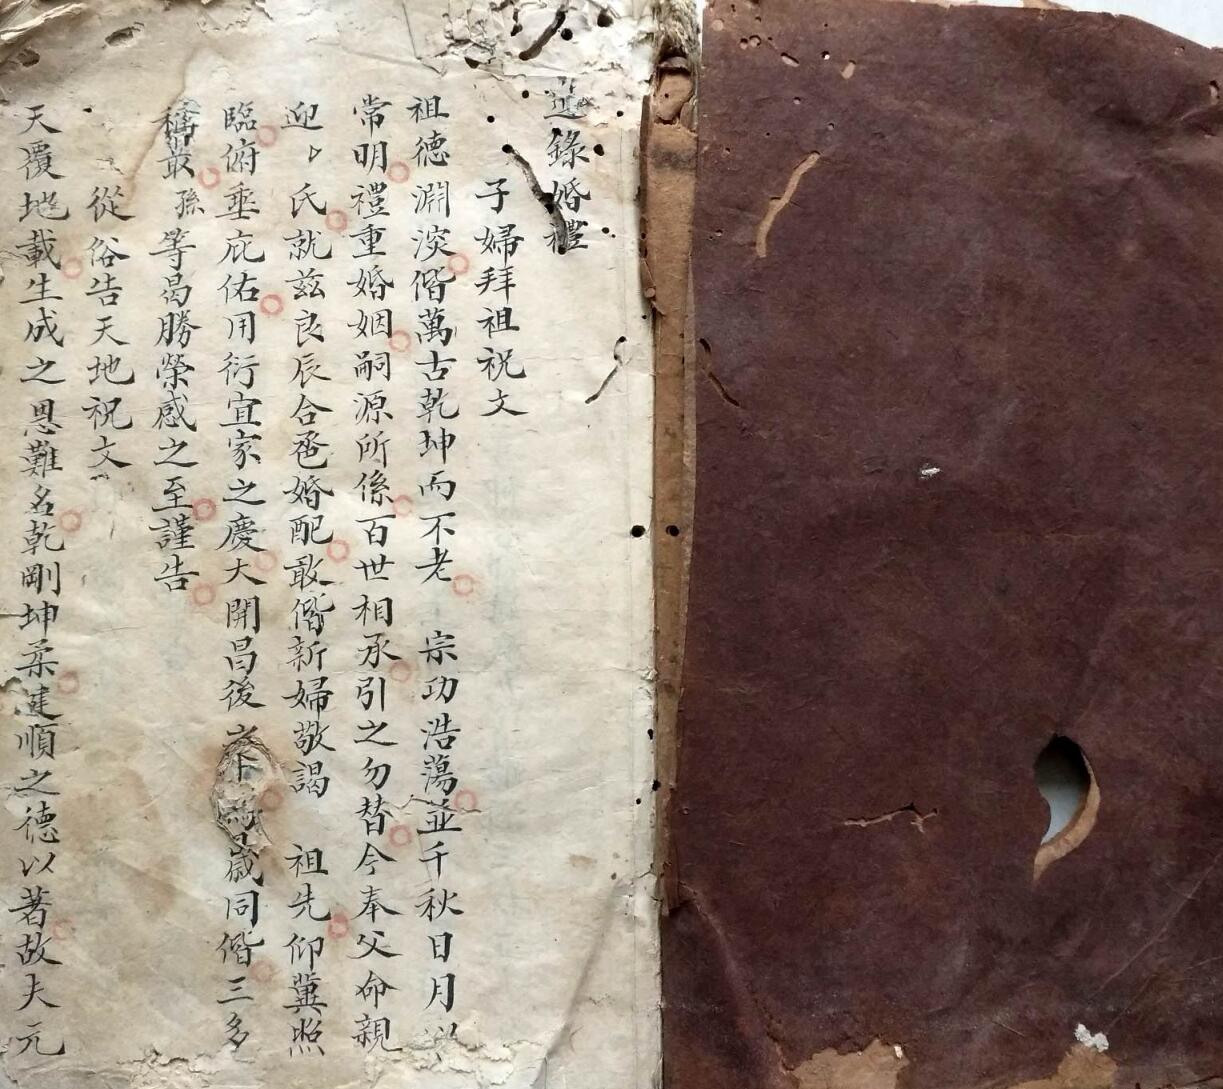 錄婚禮
子婦拜祖祝文
祖德淵淡偕萬古乾坤而不老 宗功浩蕩並千秋日月以
常明禮重婚姻嗣源所係百世相承引之勿替今奉父命親
迎卩氏就兹良辰合卺婚配敢偕新婦敬謁 祖先仰冀照
臨俯垂庇佑用衍宜家之慶大開昌後歲同偕三多
孫等曷勝榮感之至謹告
從俗告天地祝文
天覆地載生成之恩難名乾剛坤柔健順之德以著故夫元